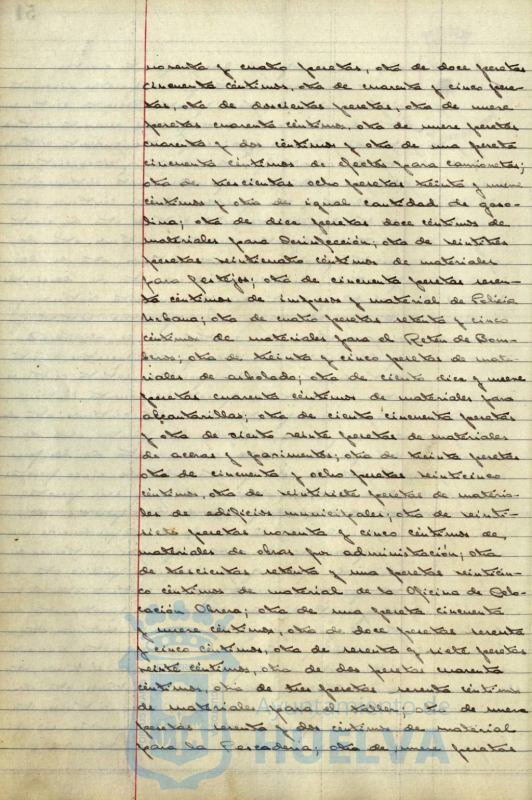 noventa y cuatro pesetas, otra de doce pesetas
cincuenta céntimos, otra de cuarenta y cinco pese-
tas, otra de doscientas pesetas, otra de nueve
pesetas cuarenta céntimos, otra de nueve pesetas
cuarenta y dos céntimos y otra de una peseta
cincuenta céntimos de efectos para camionetas;
otra de trescientas ocho pesetas treinta y nueve
céntimos y otra de igual cantidad de gaso-
lina; otra de diez pesetas doce céntimos de
materiales para Desinfección; otra de veintitres
pesetas veinticuatro céntimos de materiales
para festejos; otra de cincuenta pesetas seten-
ta céntimos de impresos y material de Policía
Urbana; otra de cuatro pesetas setenta y cinco
céntimos de materiales para el Retén de Bom-
beros; otra de treinta y cinco pesetas de mate-
riales de arbolado; otra de ciento diez y nueve
pesetas cuarenta céntimos de materiales para
alcantarillas; otra de ciento cincuenta pesetas
y otra de ciento veinte pesetas de materiales
de aceras y pavimentos; otra de treinta pesetas
otra de cincuenta y ocho pesetas veinticinco
céntimos, otra de veintisiete pesetas de materia-
les de edificios municipales; otra de veinti-
siete pesetas noventa y cinco céntimos de
materiales de obras por administración; otra
de trescientas setenta y una pesetas veinticin-
co céntimos de material de la Oficina de Colo-
cación Obrera; otra de una peseta cincuenta
y nueve céntimos, otra de doce pesetas
y cinco céntimos, otra de y siete pesetas
veinte céntimos, otra de dos pesetas cuarenta
céntimos, otra de tres pesetas céntimos
de materiales para el taller; otra de nueve
pesetas y dos céntimos de material
para la Pescadería; otra de nueve pesetas
Ayuntamiento de
HUELVA